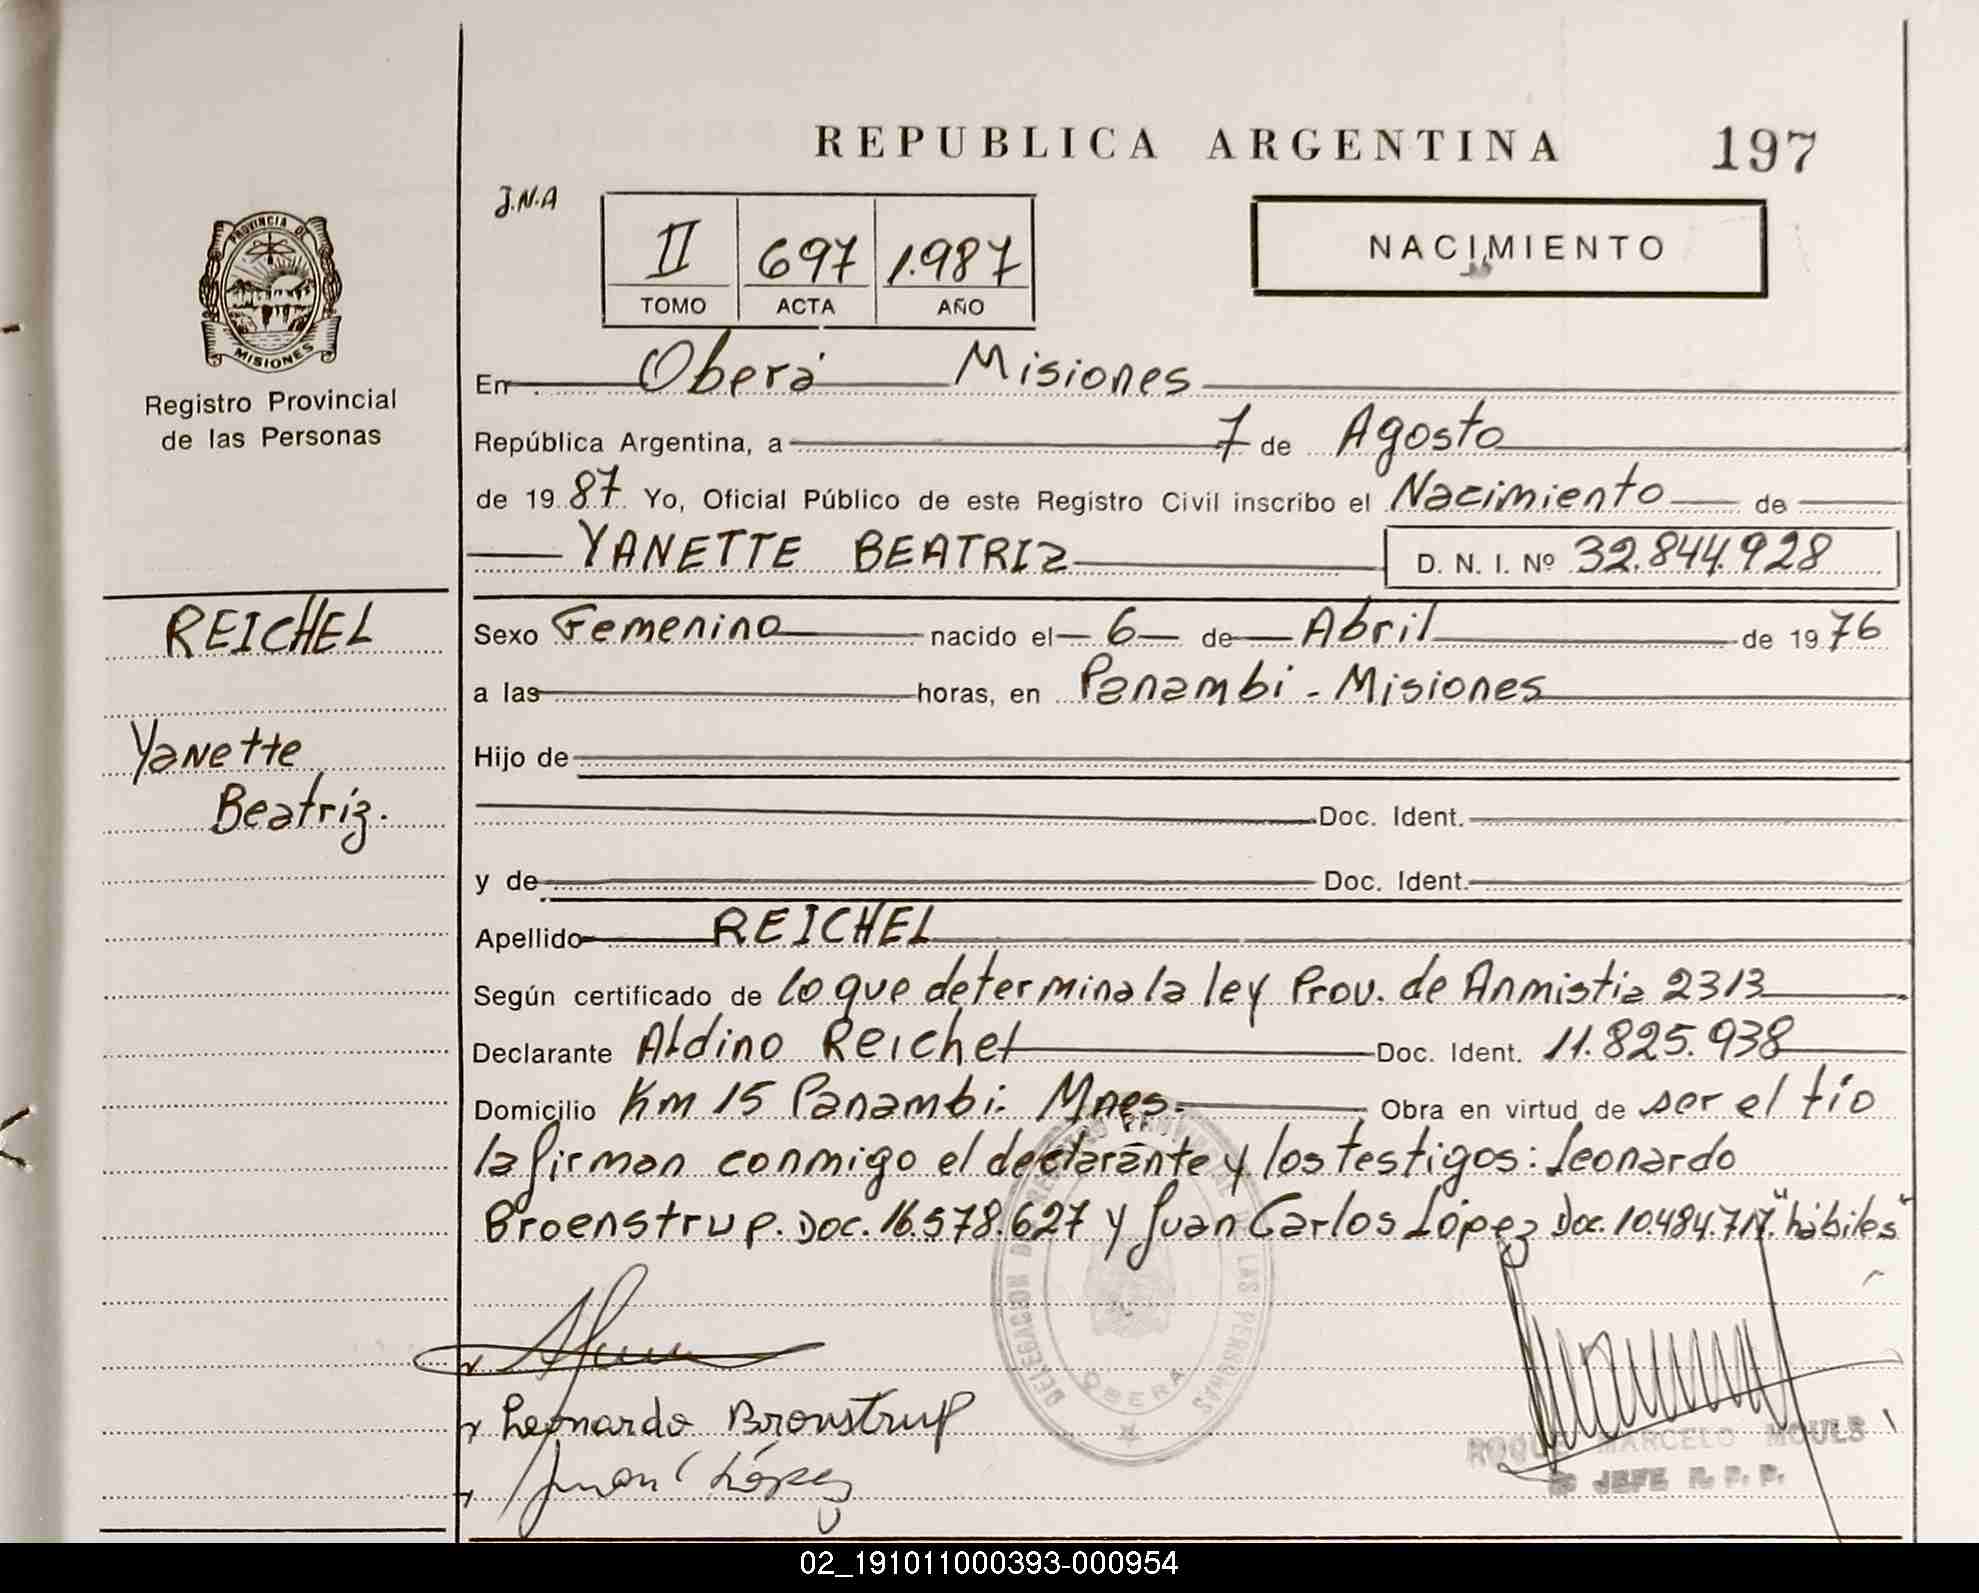 REPUBLICA ARGENTINA
197
J.N.A
II 697 1.987
TOMO ACTA AÑO
NACIMIENTO
PROVINCIA DE
MISIONES
Registro Provincial
de las Personas
REICHEL
Yanette
Beatriz.
En Oberá Misiones
República Argentina, a 7 de Agosto
de 19 87 Yo, Oficial Público de este Registro Civil inscribo el Nacimiento de
YANETTE BEATRIZ D. N. I. Nº 32.844.928
Sexo Femenino nacido el 6 de Abril de 19 76
a las horas, en Panambi - Misiones
Hijo de
Doc. Ident.
y de Doc. Ident.
Apellido REICHEL
Según certificado de lo que determina la ley Prov. de Anmistia 2313
Declarante Aldino Reichel Doc. Ident. 11.825.938
Domicilio Km 15 Panambi. Mnes. Obra en virtud de ser el tío
la firman conmigo el declarante y los testigos: Leonardo
Broenstrup. Doc. 16.578.627 y Juan Carlos López Doc. 10.484.717. "hábiles"
DELEGACION DE REGISTRO PROVINCIAL DE LAS PERSONAS
OBERA
Leonardo Bronstrup
Juan C López
ROQUE MARCELO MOULS
JEFE R. P. P.
02_191011000393-000954